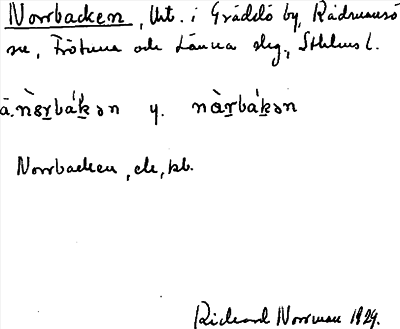 Norrbacken, Ut. i Gräddö by, Rådmansö
sn, Frötuna och Länna slg, Sthlms l.
ä. nòr̲bák̲ən y. nàr̲bák̲ən
Norrbacken, ek, kb.
Rickard Norrman 1929.